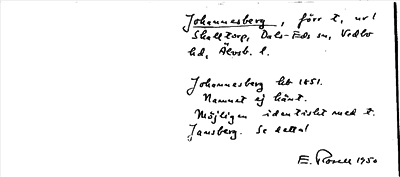 Johannesberg, förr t, nr 1
Skalltorp, Dals-Eds sn, Vedbo
hd, Älvsb. l.
Johannesberg hb 1851.
Namnet ej känt.
Möjligen identiskt med t.
Jansberg. Se detta!
E. Rosell 1950